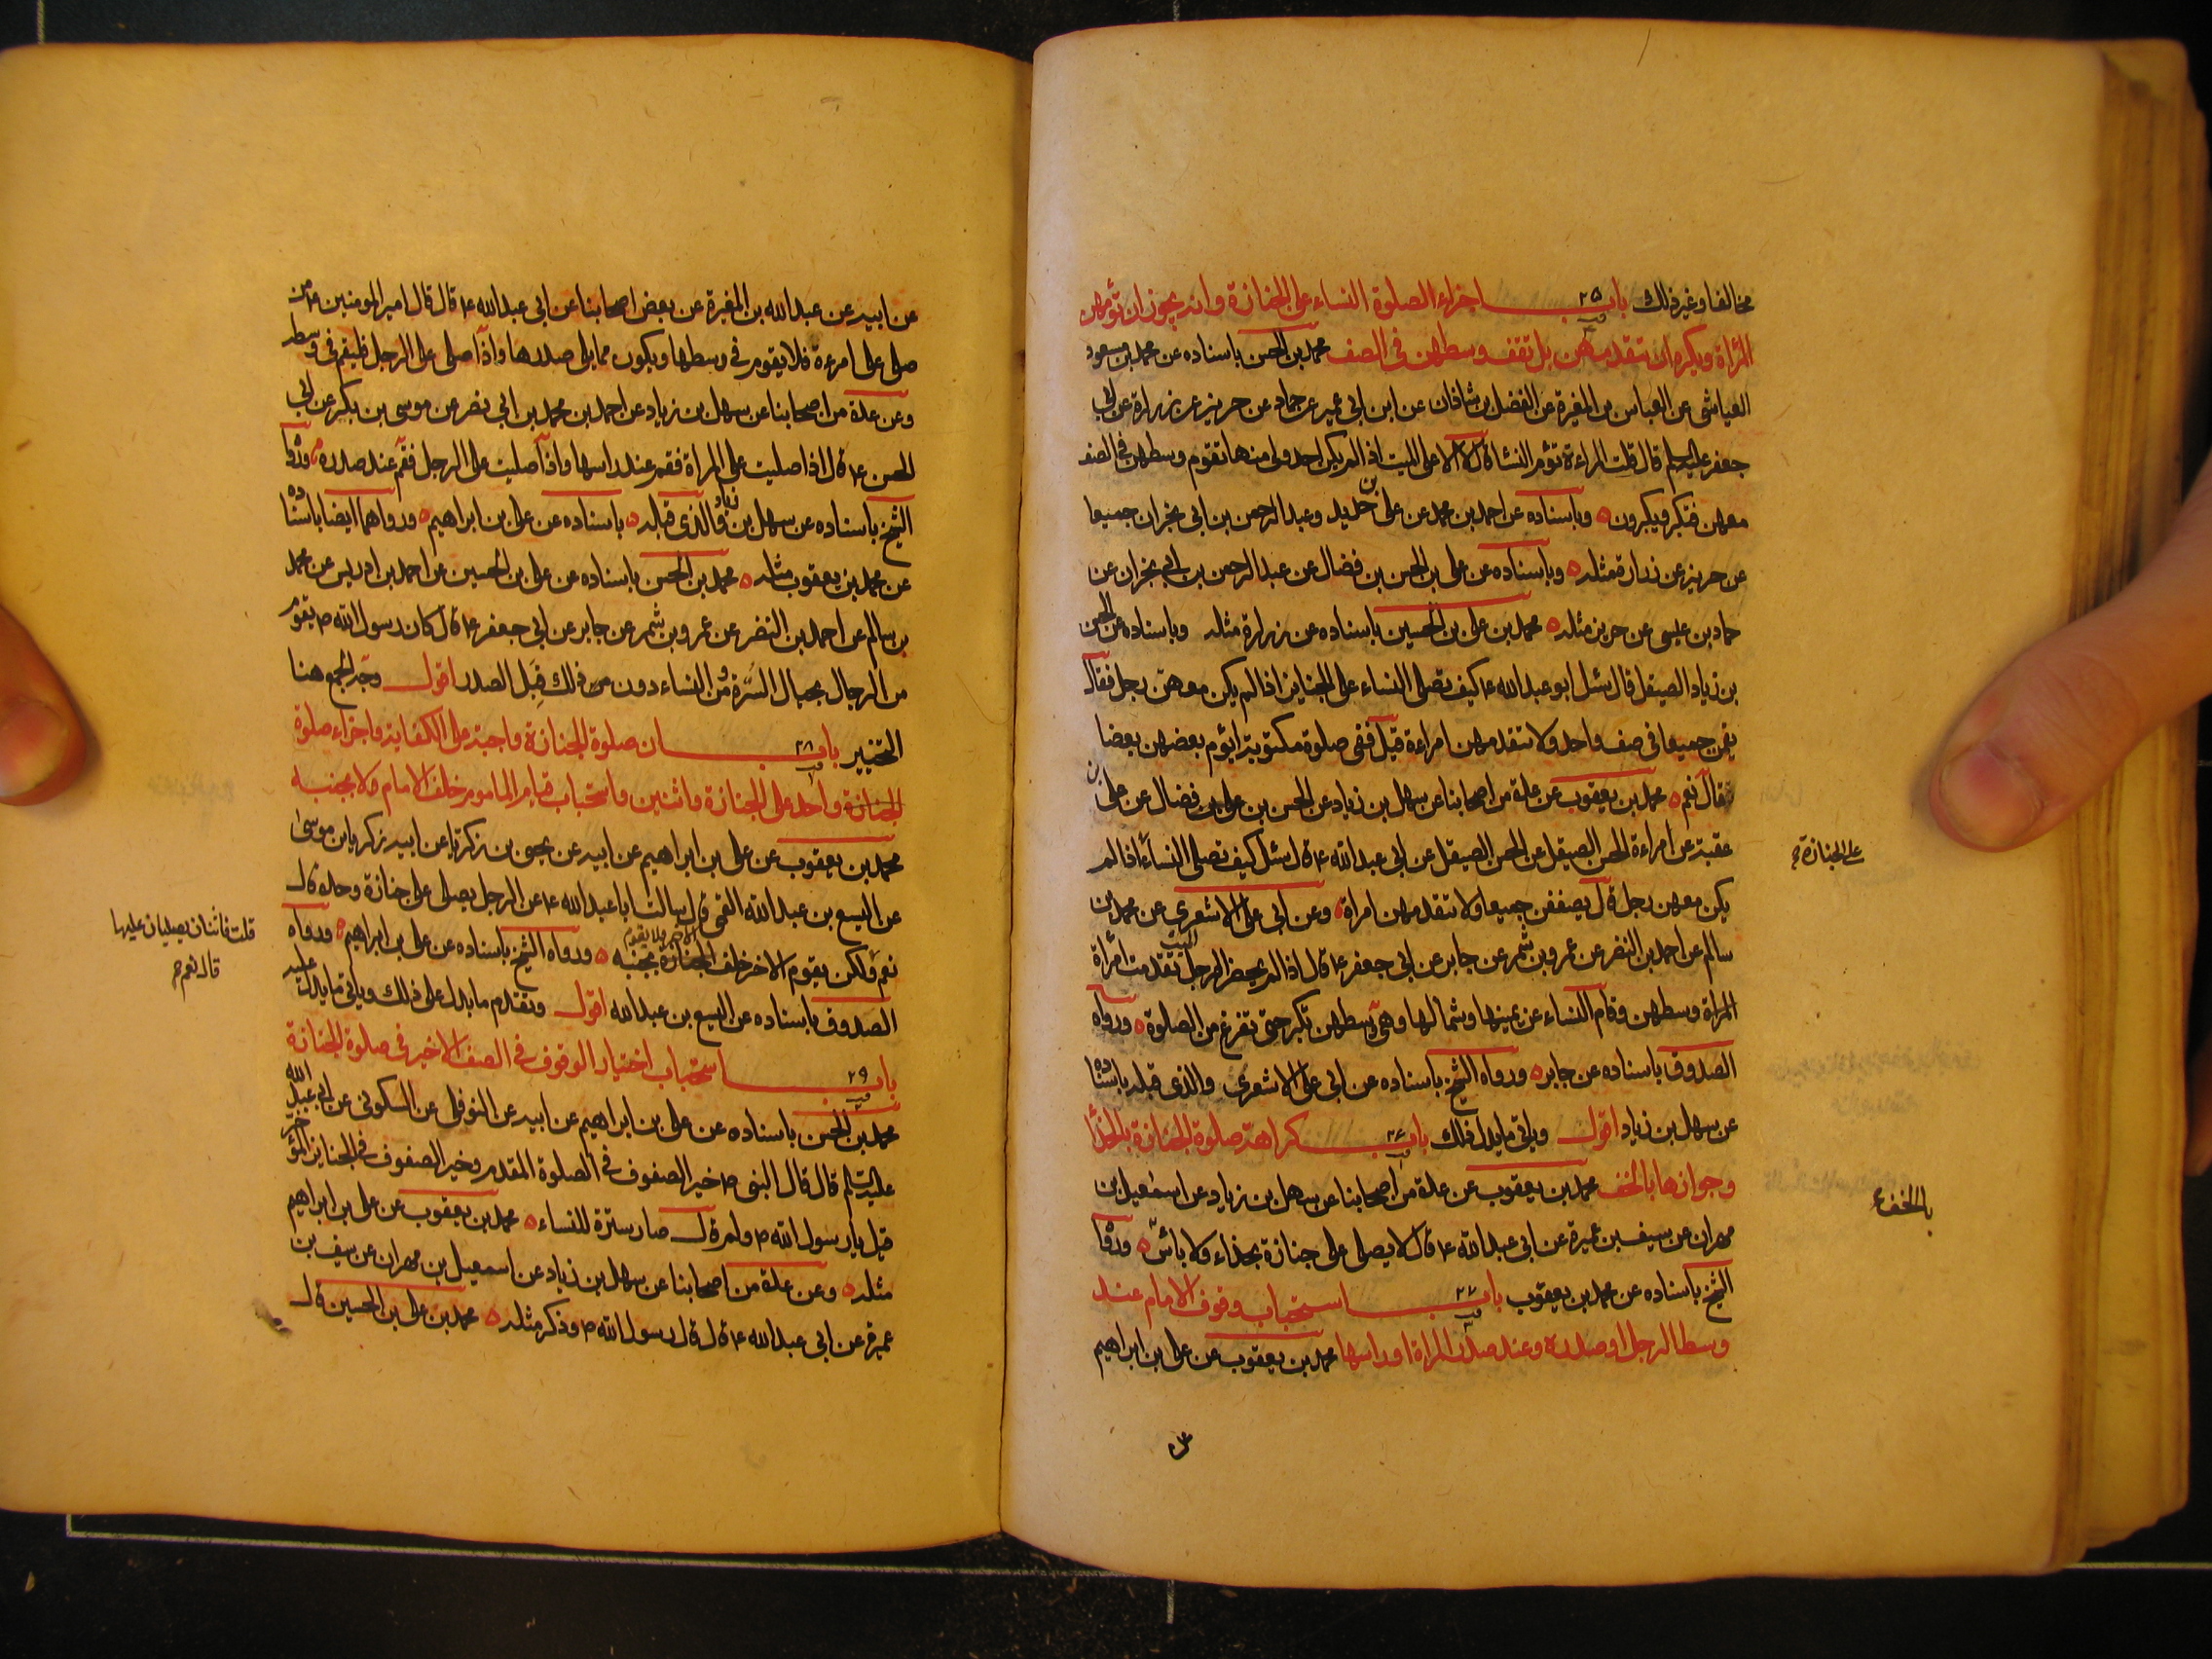 مخالفا وغير ذلك باب ٢٥ اجزاء الصلوة النساء على الجنازة وانه يجوز ان تؤمهن
المرأة ويكره ان تتقدمهن بل تقف وسطهن في الصف محمد بن الحسن باسناده عن محمد بن مسعود
العياشى عن العباس بن المغيرة عن الفضل بن شاذان عن ابن ابى عمير عن حماد عن حريز عن زرارة عن ابى
جعفر عليه السلم قال قلت المراءة تؤم النسا قال لا الا على الميت اذا لم يكن احد اولى منها تقوم وسطهن في الصف
معهن فتكبر ويكبرون وباسناده عن احمد بن محمد عن على بن حديد وعبد الرحمن بن ابى نجران جميعا
عن حريز عن زرارة مثله وباسناده عن على بن الحسن بن فضال عن عبد الرحمن بن ابى نجران عن
حماد بن عيسى عن حريز مثله محمد بن على بن الحسين باسناده عن زرارة مثله وباسناده عن الحسن
بن زياد الصيقل قال سئل ابو عبد الله ع كيف تصلى النساء على الجنايز اذا لم يكن معهن رجل فقال
يقمن جميعا في صف واحد ولا تتقدمهن امراءة قيل ففى صلوة مكتوبة ايؤم بعضهن بعضا
فقال نعم محمد بن يعقوب عن عدة من اصحابنا عن سهل بن زياد عن الحسن بن على بن فضال عن على بن
عقبة عن امراءة الحسن الصيقل عن الحسن الصيقل عن ابى عبد الله ع قال سئل كيف تصلى النساء اذا لم
على الجنازة
يكن معهن رجل قال يصففن جميعا ولا تتقدمهن امراة وعن ابى على الاشعرى عن محمد بن
سالم عن احمد بن النضر عن عمرو بن شمر عن جابر عن ابى جعفر ع قال اذا لم يحضر الرجل الميت تقدمت امرأة
المراة وسطهن وقام النساء عن يمينها وشمالها وهى وسطهن تكبر حتى تفرغ من الصلوة ورواه
الصدوق باسناده عن جابر ورواه الشيخ باسناده عن ابى على الاشعرى والذى قبله باسناده
عن سهل بن زياد اقول وياتى ما يدل ذلك باب ٢٦ كراهة صلوة الجنازة بالحذا
وجوازها بالخف محمد بن يعقوب عن عدة من اصحابنا عن سهل بن زياد عن اسمعيل بن
بالخف
مهران عن سيف بن عميرة عن ابى عبد الله ع قال لا يصلى على جنازة بحذاء ولا باس ورواه
الشيخ باسناده عن محمد بن يعقوب باب ٢٧ استحباب وقوف الامام عند
وسط الرجل او صدره وعند صدر المراة او راسها محمد بن يعقوب عن على بن ابراهيم
عن ابيه عن عبد الله بن المغيرة عن بعض اصحابنا عن ابى عبد الله ع قال قال امير المومنين ع من
صلى على امرءة فلا يقوم في وسطها ويكون مما يلى صدرها واذا صلى على الرجل فليقم في وسطه
وعن عدة من اصحابنا عن سهل بن زياد عن احمد بن محمد بن ابى نصر عن موسى بن بكر عن ابى
الحسن ع قال اذا صليت على المراة فقم عند راسها واذا صليت على الرجل فقم عند صدره ورواه
الشيخ باسناده عن سهل بن زياد والذى قبله باسناده عن على بن ابراهيم ورواهما ايضا باسناده
عن محمد بن يعقوب مثله محمد بن الحسن باسناده عن على بن الحسين عن احمد بن ادريس عن محمد
بن سالم عن احمد بن النضر عن عمرو بن شمر عن جابر عن ابى جعفر ع قال كان رسول الله ص يقوم
من الرجال بحيال السرة ومن النساء دون من ذلك قِبَل الصدر اقول وجه الجمع هنا
التخيير باب ٢٨ ان صلوة الجنازة واجبة على الكفاية واجزاء صلوة
الجنازة واحد على الجنازة واثنين واستحباب قيام الماموم خلف الامام لا بجنبه
محمد بن يعقوب عن على بن ابراهيم عن ابيه عن يحيى بن زكريا عن ابيه زكريا بن موسى
عن اليسع بن عبد الله القمى قال سالت ابا عبد الله ع عن الرجل يصلى على جنازة وحده قال
قلت فاثنان يصليان عليها
قال نعم
نعم ولكن يقوم الاخر خلف الاخر ولا يقوم بجنبه ورواه الشيخ باسناده عن على بن ابراهيم ورواه
الصدوق باسناده عن اليسع بن عبد الله اقول وتقدم ما يدل على ذلك وياتى ما يدل عليه
باب ٢٩ استحباب اختيار الوقوف في الصف الاخير في صلوة الجنازة
محمد بن الحسن باسناده عن على بن ابراهيم عن ابيه عن النوفلى عن السكونى عن ابى عبد الله
عليه السلم قال قال النبى ص خير الصفوف في الصلوة المقدم وخير الصفوف في الجنايز المؤخر
قيل يا رسول الله ص ولم قال صار سترة للنساء محمد بن يعقوب عن على بن ابراهيم
مثله وعن عدة من اصحابنا عن سهل بن زياد عن اسمعيل بن مهران عن سيف بن
عميرة عن ابى عبد الله ع قال قال رسول الله ص وذكر مثله محمد بن على بن الحسين قال